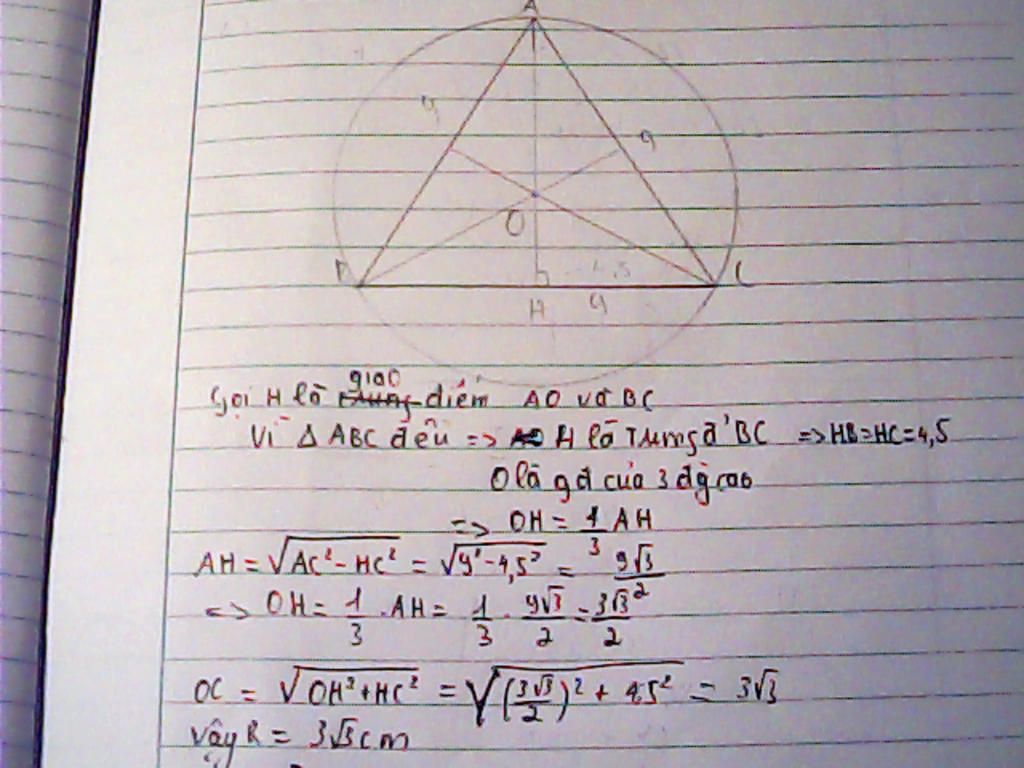 A
9
9
O
4,5
B
C
H
9
Gọi H là giao điểm AO và BC
Vì Δ ABC đều => H là Trung đ' BC => HB=HC=4,5
O là gđ của 3 đg cao
=> OH = 1/3 AH
AH = √(AC² - HC²) = √(9² - 4,5²) = 9√3/2
<=> OH = 1/3 . AH = 1/3 . 9√3/2 = 3√3/2
OC = √(OH² + HC²) = √((3√3/2)² + 4,5²) = 3√3
Vậy R = 3√3 cm